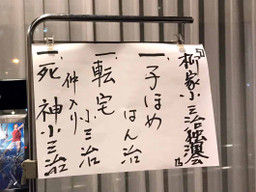 柳家小三治独演会
一、子ほめ
はん治
一、転宅
小三治
仲入り
一、死神
小三治